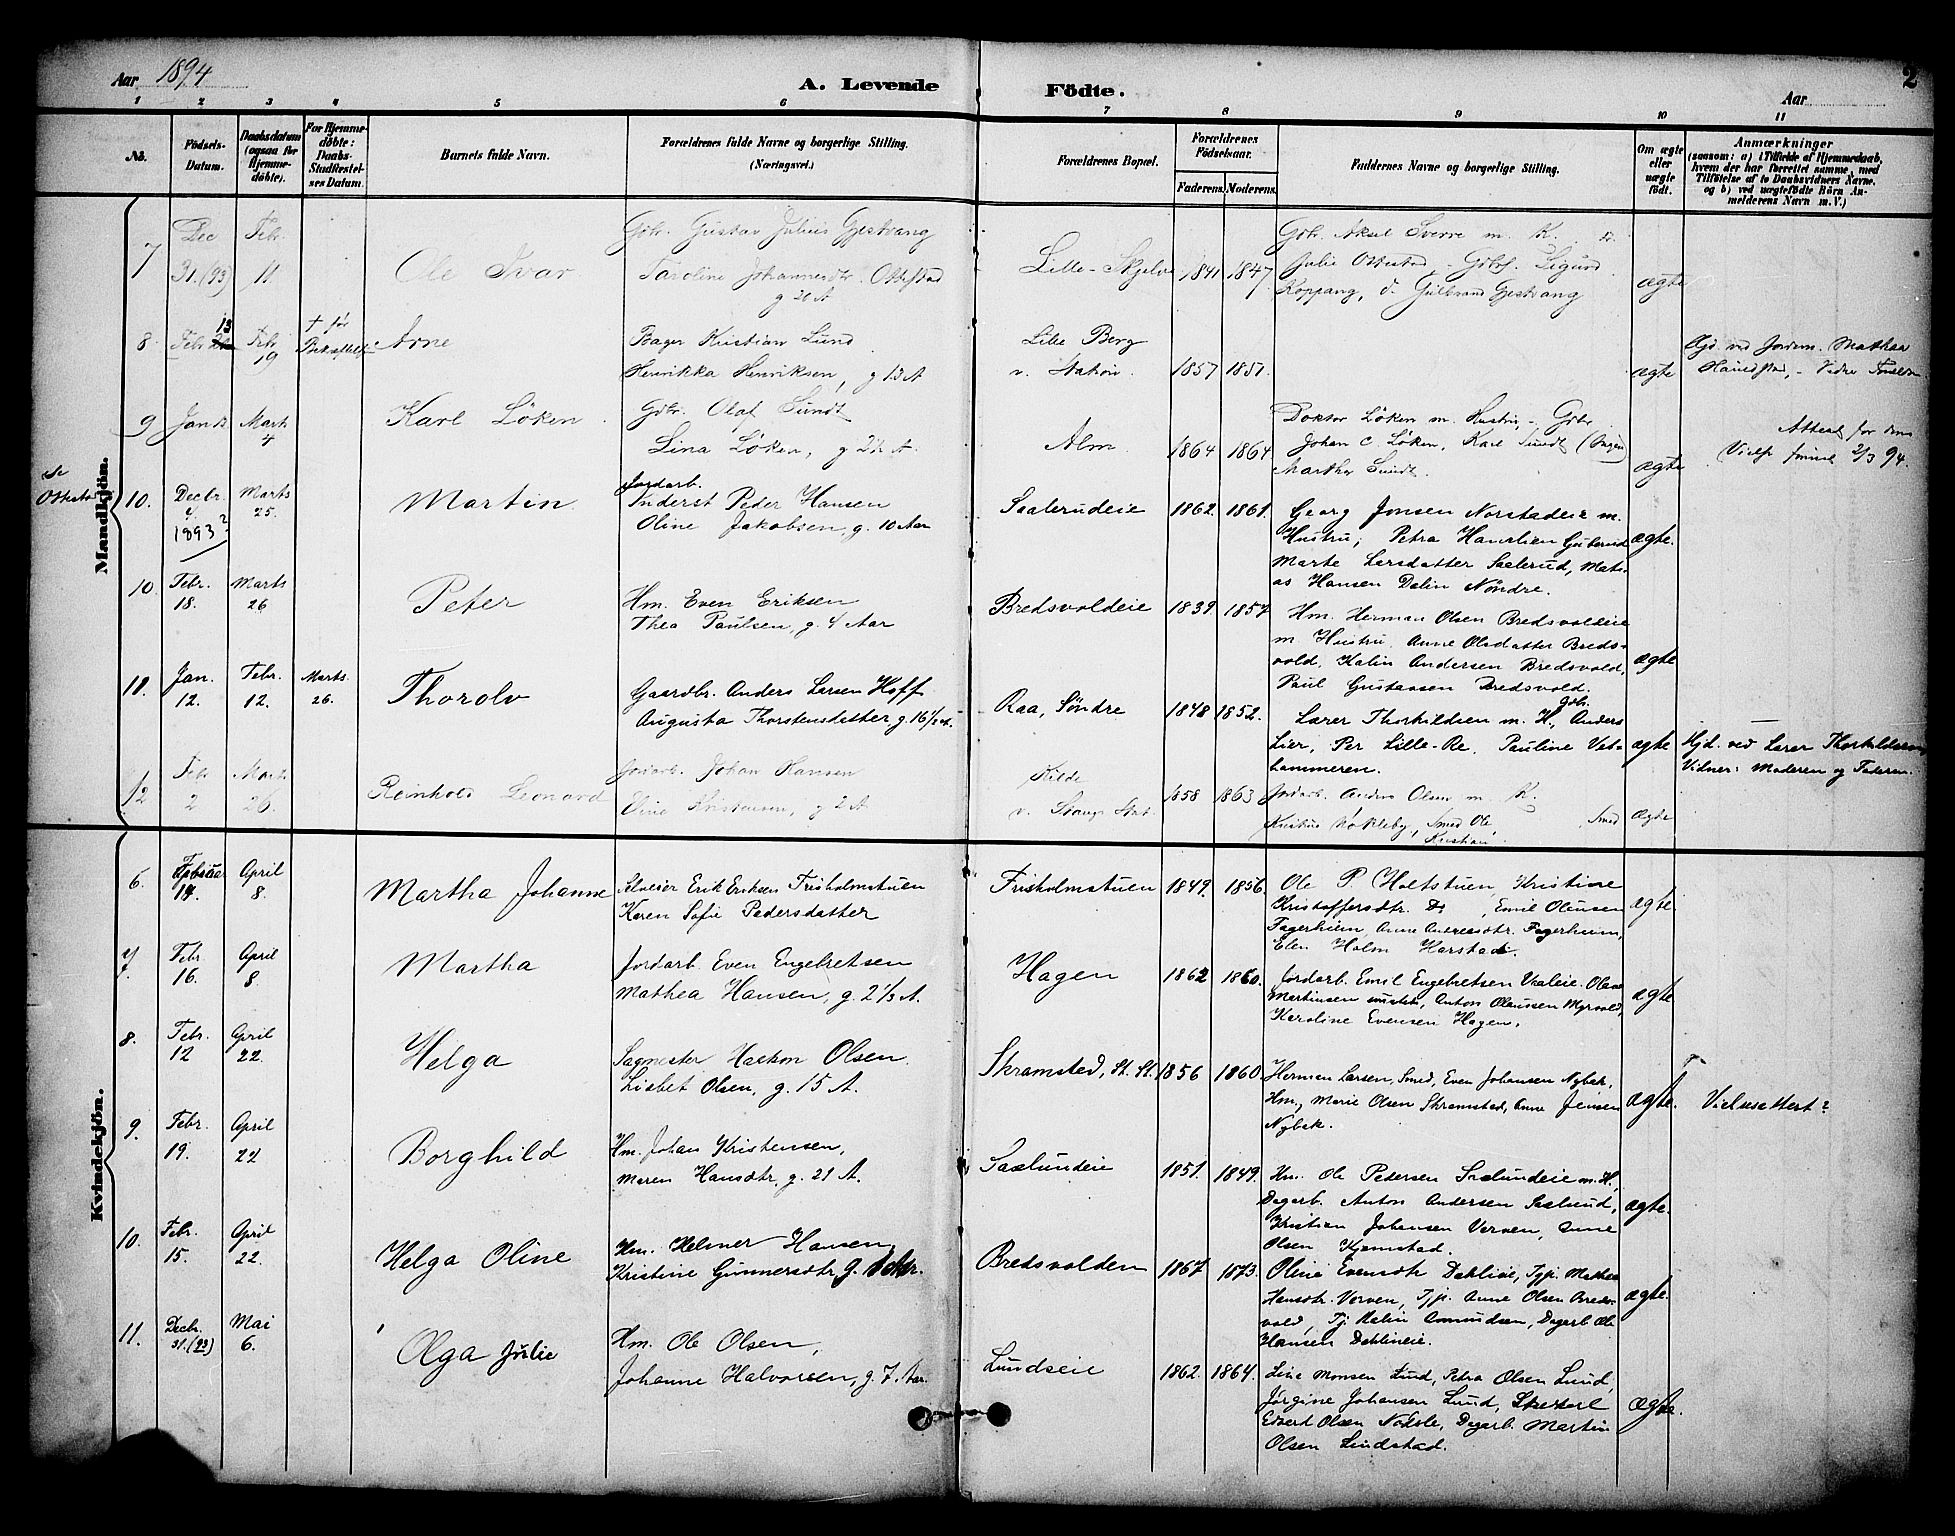 Aar 1894
A. Levende Födte.
2
Aar
1 2 3 4 5 6 7 8 9 10 11
No.
Födsels-Datum.
Daabsdatum (ogsaa for Hjemmedöbte).
For Hjemmedöbte: Daabs-Stadfæstelses Datum.
Barnets fulde Navn.
Forældrenes fulde Navne og borgerlige Stilling. (Næringsvei.)
Forældrenes Bopæl.
Forældrenes Födselsaar.
Faderens. Moderens.
Faddernes Navne og borgerlige Stilling.
Om ægte eller uægte födt.
Anmærkninger
(saasom: a) i Tilfælde af Hjemmedaab, hvem der har forrettet samme, med Tilföielse af to Daabsvidners Navne, og b) ved uægtefödte Börn Anmelderens Navn m. V.)
Mandkjön.
7 Dec 31.(93) Febr. 11
Ole Ivar
Gbr. Gustav Julius Gjestvang
Karoline Johannesdtr. Ottestad
g 20 A
Lille-Skjelve 1841 1847
Gbr. Aksel Sverre m. K.
Julie Ottestad, Gbr. Sigurd
Koppang, d. Gulbrand Gjestvang
ægte
8 Febr 13 Febr 19
† før Bekræftelse
Arne
Bager Kristian Lund
Henrikka Henriksen, g 13 A
Lille Berg
v. Station. 1857 1851.
ægte
Hjd. ved Jordm. Mathea
9 Jan Marts 4
Karl Løken
Gbr. Olaf Sundt
Lina Løken, g 2½ A.
Alm 1864 1864
Doktor Løken m. Hustru, Gbr.
Johan C Løken, Karl Sundt
Marthe Sundt.
ægte
Attest for
2/3 94.
se Ottestad
10. Decbr. 4. 1893? Marts 25.
Martin
Jordarb.
Inderst Peder Hansen
Oline Jakobsen, g. 10 Aar
Saalerudeie 1862. 1861.
Georg Jonsen Norstadeie m.
Hustru, Petra
Marte Larsdatter Saalerud, Mat-
as Hansen Dalin Nøndre.
ægte.
10. Febr. 18. Marts 26
Peter
Hm. Even Eriksen
Thea Paulsen, g. 4 Aar
Bredsvoldeie 1839 1857
Hm. Herman Olsen Bredsvoldeie
m. Hustru, Anne Olsdatter Breds-
vold, Kalin Andersen Bredsvold,
Paul Gustavsen Bredsvold.
ægte
11. Jan. 12. Febr. 12. Marts 26.
Thorolv
Gaardbr. Anders Larsen Hoff
Augusta Thorstensdatter, g. 16½ A.
Raa, Søndre 1848 1852.
Lærer Thorkildsen m. H., Gbr. Anders
Lier, Per Lille-Re, Pauline Vet-
hammeren.
ægte
Hjd. ved Lærer Thorkildsen
Vidner: Moderen og Faderen.
12 Febr 2 Marts 26.
Reinhold Leonard
Jordarb. Johan Hansen
Kristensen, g 2 A
Kilde
v. Stange Stat. 1858 1863
Jordarb. Anders Olsen m. K.
Kristine Nøkleby, Smed Ole
Kristian
ægte
Kvindekjön.
6. Februar 14. April 8.
Martha Johanne
Selveier Erik Eriksen Frisholmstuen
Karen Sofie Pedersdatter
Frisholmstuen 1849. 1856.
Ole P Holtstuen, Kristine
Kristoffersdtr. Ds, Emil Olausen
Fagerheim, Anne Andreasdtr. Fagerheim,
Elen Holm Harstad.
ægte.
7. Febr. 16. April 8.
Martha
Jordarb. Even Engebretsen
Mathea Hansen, g. 2⅓ A.
Hagen 1862 1860.
Jordarb. Emil Engebretsen
Martinsen, Anton Olaussen Myrvold,
Karoline Evensen Hagen.
ægte
8. Febr. 12 April 22.
Helga
Sagmester Haakon Olsen
Lisbet Olsen, g. 15 A.
Skramstad, St. St. 1856 1860.
Herman Larsen, Smed, Even Johansen Nybak,
Hm., Marie Olsen Skramstad, Anne Jensen
Nybak.
ægte.
Vielsesattest?
9. Febr. 19. April 22
Borghild
Hm. Johan Kristensen,
Maren Hansdtr, g. 21 A.
Saslundeie 1851. 1849.
Hm. Ole Petersen Saslundeie m. H,
Dagarb. Anton Andersen Saslund,
Kristian Johansen Verven, Anne
Olsen Kjemstad.
ægte.
10. Febr. 15. April 22.
Helga Oline
Hm. Helmer Hansen,
Kristine Gunnersdtr, g. 1 Aar.
Bredsvolden 1867. 1873.
Oline Evensdtr Dahlieie, Tjp. Mathea
Hansdtr. Verven, Tjp. Anne Olsen Breds-
vold, Tj. Kalin Amundsen, Dagarb Ole
Hansen Dahlineie.
ægte.
11. Decbr. 31.(93) Mai 6.
Olga Julie
Hm. Ole Olsen,
Johanne Halvorsen, g. 7 Aar.
Lundseie 1862. 1864.
Line Monsen Lund, Petra Olsen Lund,
Jørgine Johansen Lund,
Edvard Olsen, Dagarb. Martin
Olsen Lindstad.
ægte.